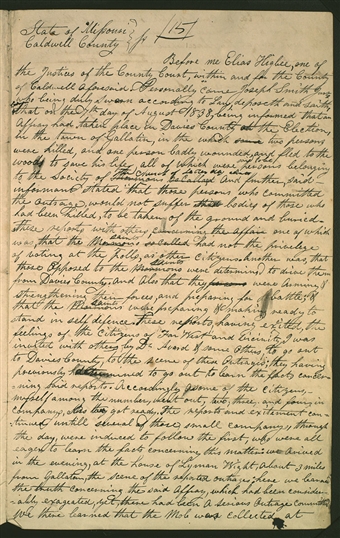 State of Missouri } ss 115
Caldwell County
Before me Elias Higbee, one of
the Justices of the County Court, within and for the County
of Caldwell aforesaid Personally came Joseph Smith Jr
who being duly sworn according to Law, deposeth and saith,
that on the day of August 1838, being informed that an
Affray had taken place in Davies County at the Election,
in the town of Gallatin, in the which two persons
were killed, and one person badly wounded, and fled to the
woods to save his life, all of which were persons belonging
to the Society of the Church of Latter day Saints and further, said
informant stated that those persons who committed
the outrage, would not suffer bodies of those who
had been killed, to be taken off the ground and buried.
These reports, with others concerning the Affair one of which
was, that the Saints had not the privilege
of voting at the polls, as other Citizens, another was, that
those opposed to the Saints were determined to drive them
from Davies County, and also that they were arming &
strengthening their forces, and preparing for battle, &
that the Saints were preparing & making ready to
stand in self defence. These reports, having excited, the
feelings of the Citizens of Far West and vicinity, I was
invited with others by Dr. Avard & some others, to go out
to Davies County, to the scene of these outrages, they having
previously determined to go out & learn the facts concer-
ning said reports. Accordingly some of the citizens,
myself among the number, went out, two, three, and four, in
companys, as they got ready. The reports and excitement con-
tinued untill several of those small companys through
the day, were induced to follow the first, who were all
eager to learn the facts concerning this matter. We arrived
in the evening, at the house of Lyman Wight, about 3 miles
from Gallatin, the scene of the reported outrages, here we learned
the truth concerning the said Affray, which had been consider-
ably exagerated, yet, there had been a serious outrage Committed
We there learned that the Mob was collected, at